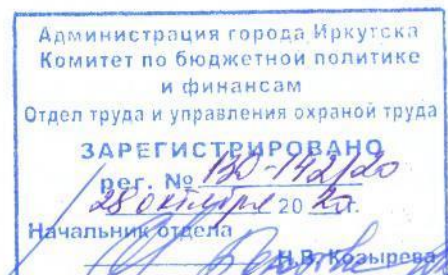 Администрация города Иркутска
Комитет по бюджетной политике
и финансам
Отдел труда и управления охраной труда
ЗАРЕГИСТРИРОВАНО
рег. № 130-142/20
28 октября 20 20 г.
Начальник отдела
Н.В. Козырева